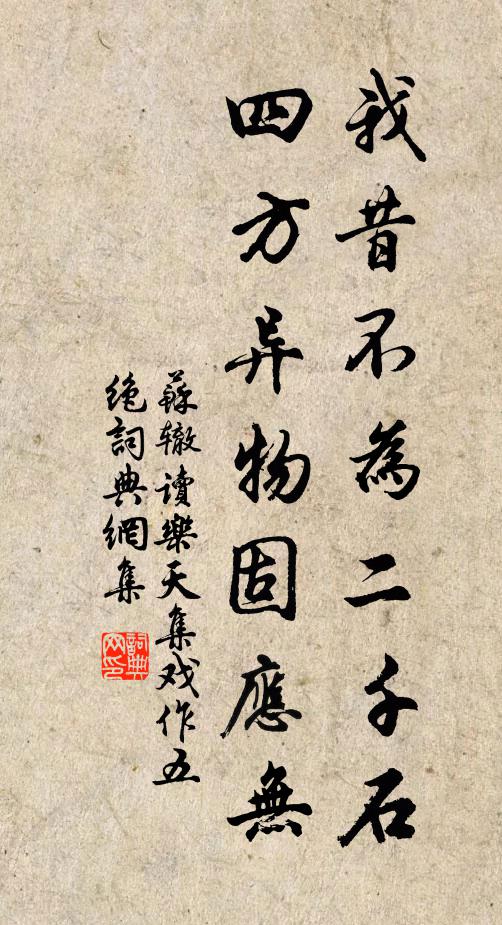 我昔不為二千石
四方异物固應無
蘇辙讀樂天集戏作五
绝詞典網集
詞典网印